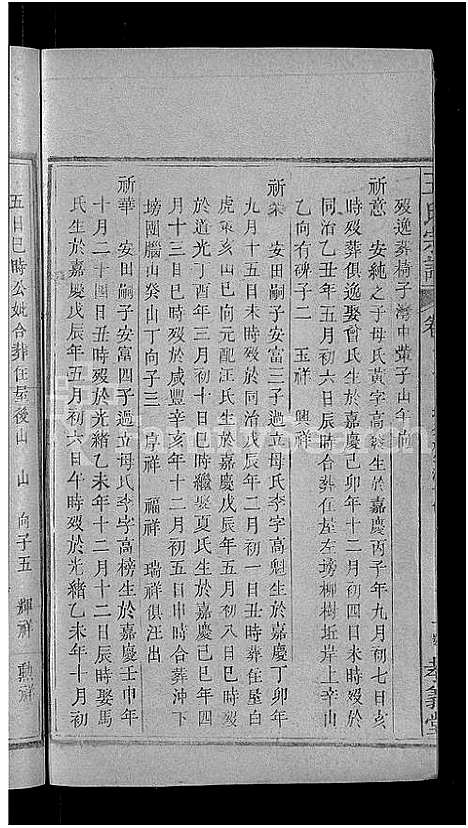 王氏宗譜
卷
孝義堂
歿逸葬椅子灣中葉子山午向
祈意　安純之子母氏黃字高義生於嘉慶丙子年九月初七日亥
時歿葬俱逸娶曾氏生於嘉慶己卯年十二月初四日未時歿於
同治乙丑年五月初六日辰時合葬在屋左塝柳樹坵岸上辛山
乙向有碑子二　玉祥　興祥
祈榮　安田嗣子安富三子過立母氏李字高魁生於嘉慶丁卯年
九月十五日未時歿於同治戊辰年二月初一日丑時葬住屋白
虎家亥山巳向元配汪氏生於嘉慶戊辰年五月初八日巳時歿
於道光丁酉年三月初十日巳時繼娶夏氏生於嘉慶己巳年四
月十三日亥時歿於咸豐辛亥年十二月初五日申時合葬沖下
塝團腦山癸山丁向子三　鼎祥　福祥　瑞祥俱汪出
祈華　安田嗣子安富四子過立母氏李字高榜生於嘉慶壬申年
十月二十四日丑時歿於光緒乙未年十二月十二日辰時娶馬
氏生於嘉慶戊辰年五月初六日午時歿於光緒乙未年十月初
五日巳時公妣合葬住屋後山　山　向子五　輝祥　勳祥